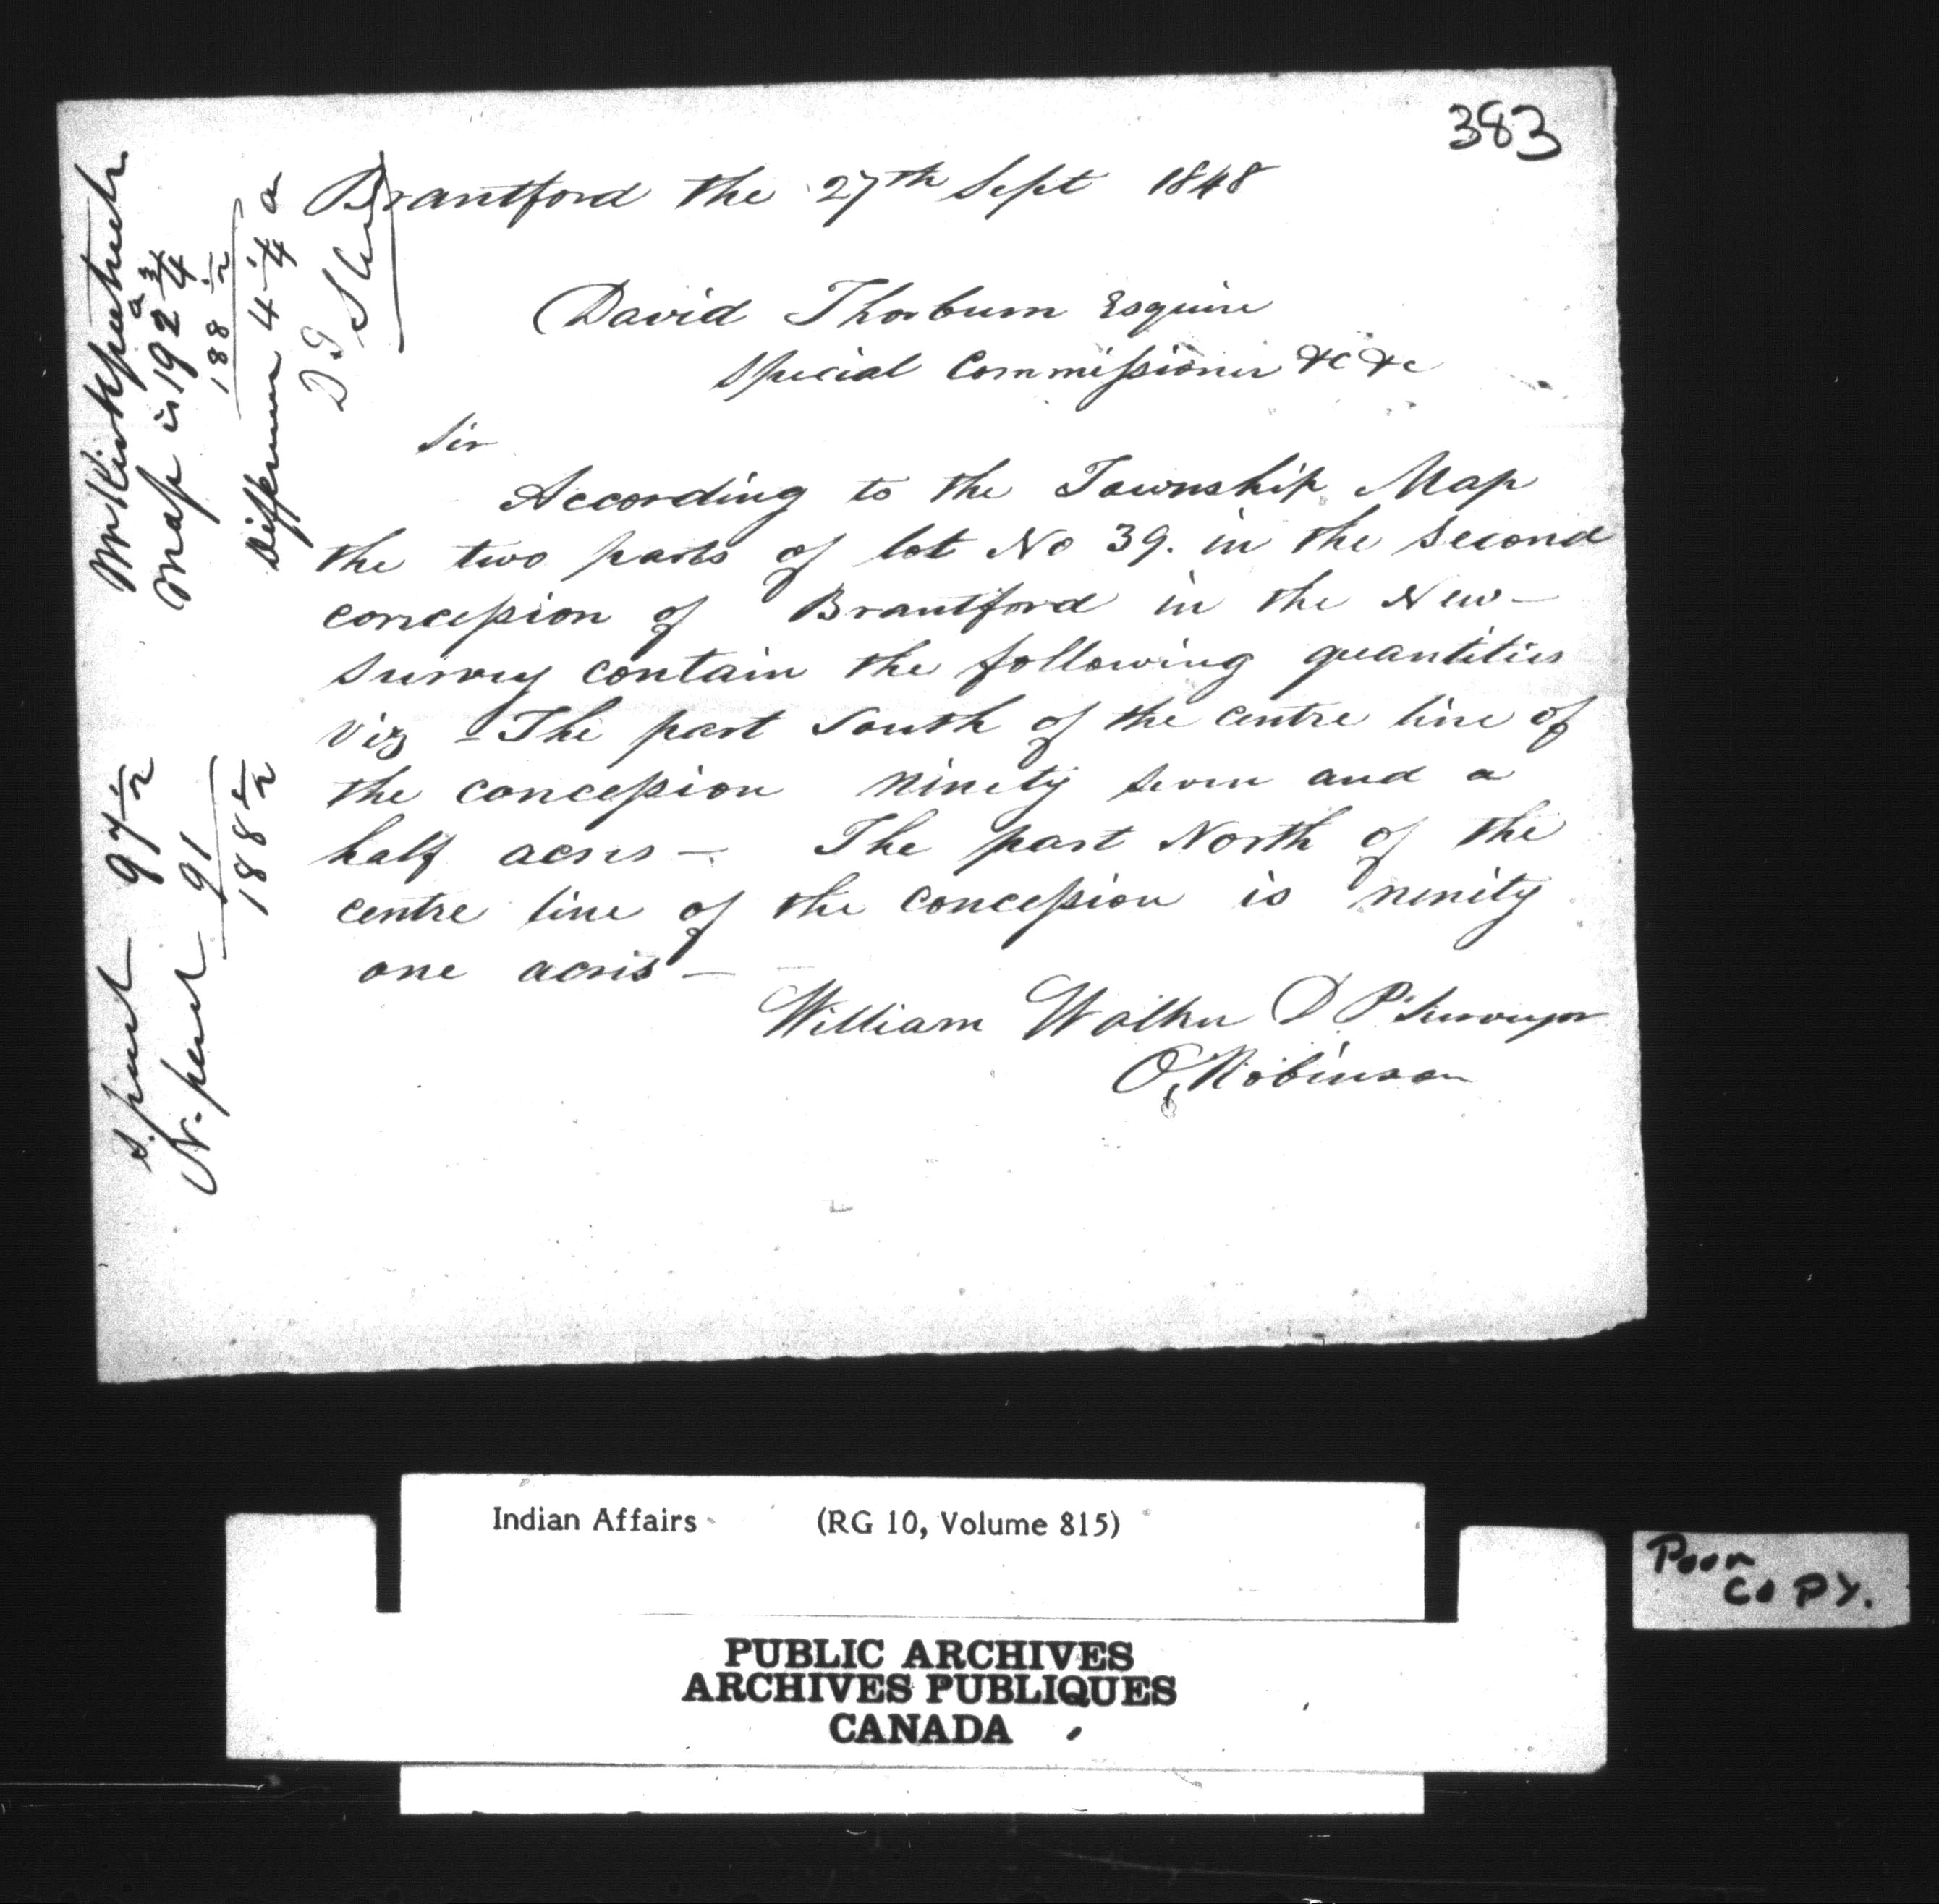 383
Brantford the 27th Sept 1848
David Thorburn Esquire
Special Commissioner &c &c
Sir
According to the Township Map
the two parts of lot No 39. in the Second
concession of Brantford in the New
survey contain the following quantities
Viz - The part South of the centre line of
the concession ninety seven and a
half acres - The part North of the
centre line of the concession is ninity
one acres -
William Walker D P Surveyor
O, Robinson
Mr Kirkpatrick
Map is 192 3/4 a
188 1/2
Difference 4 1/4 a
D T
S. part 97 1/2
N. part 91
188 1/2
Indian Affairs (RG 10, Volume 815)
PUBLIC ARCHIVES
ARCHIVES PUBLIQUES
CANADA
Poor
COPY.